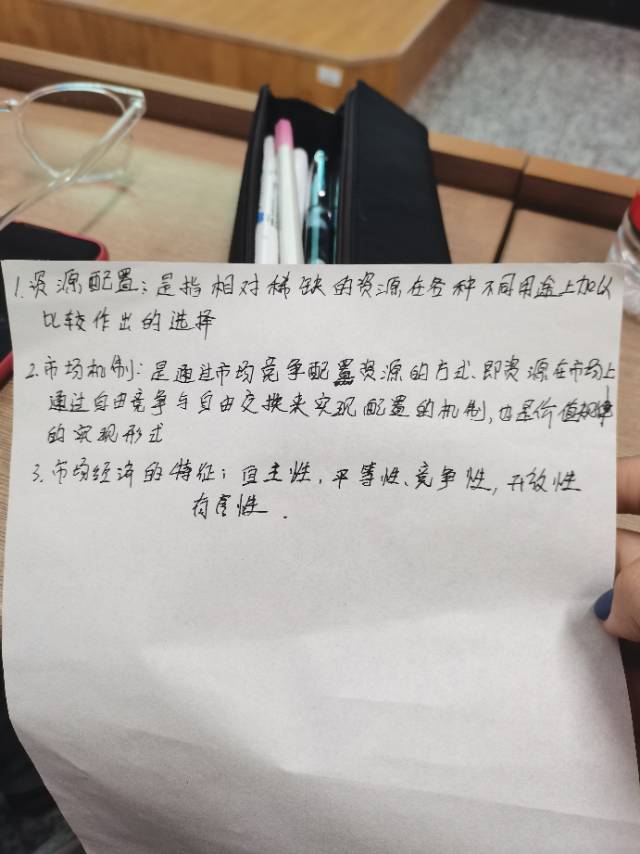 1.资源配置：是指相对稀缺的资源在各种不同用途上加以
比较作出的选择
2.市场机制：是通过市场竞争配置资源的方式、即资源在市场上
通过自由竞争与自由交换来实现配置的机制，也是价值规律
的实现形式
3.市场经济的特征：自主性，平等性、竞争性，开放性
有序性．